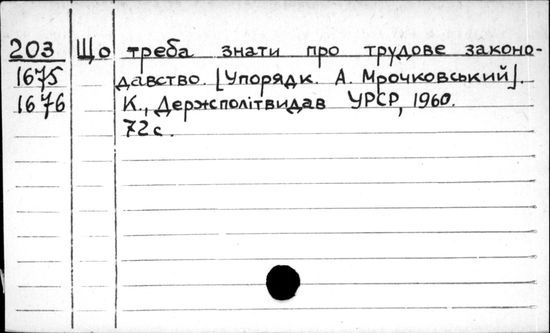 203 Що треба знати про трудове законо-
1675 давство. [Упорядк. А. Мрочковський].
1676 К., Держсполітвидав УРСР, 1960.
72 с.